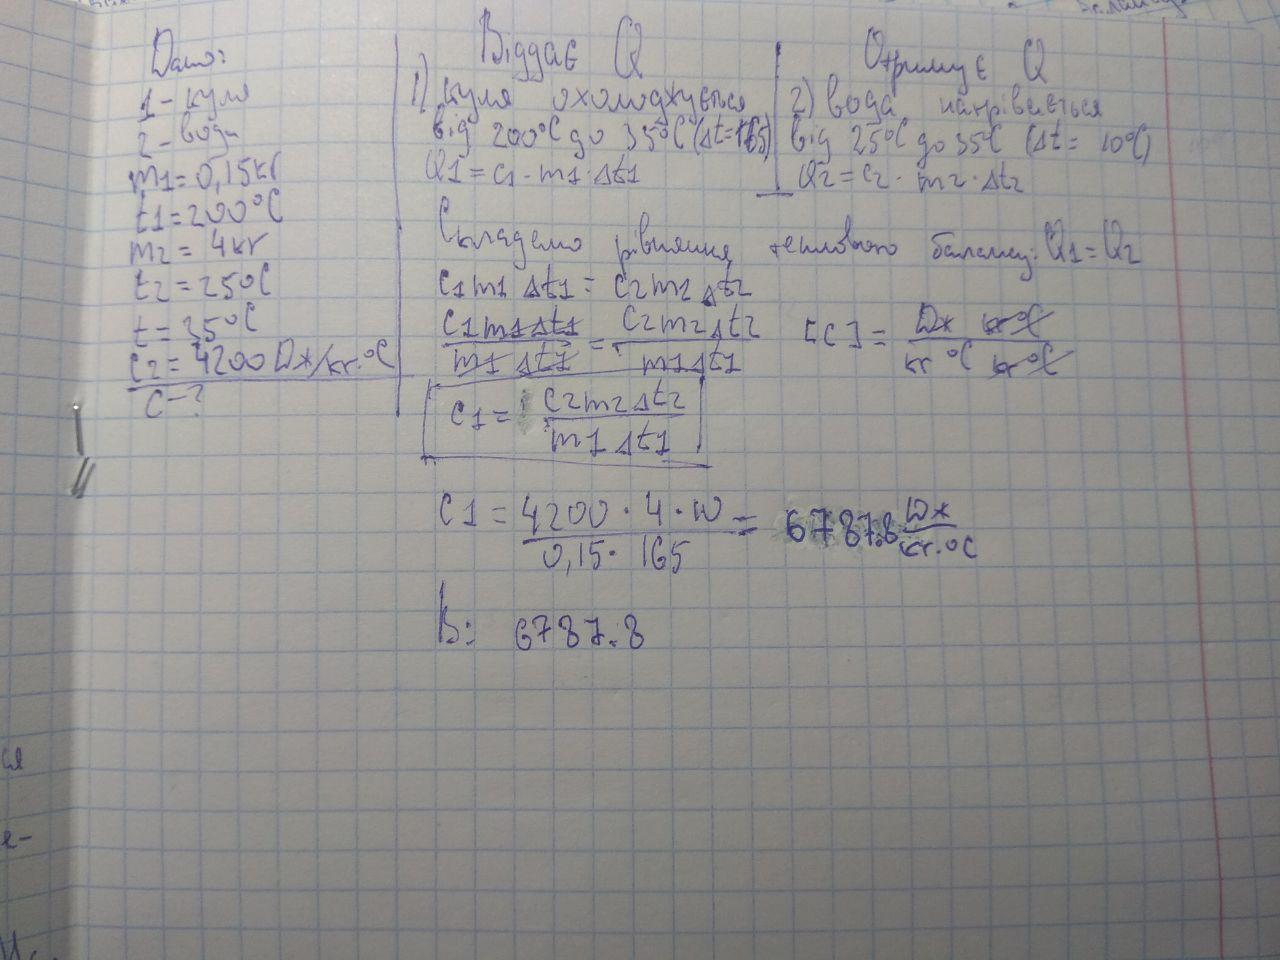 Дано:
1 - куля
2 - вода
m1 = 0,15кг
t1 = 200°C
m2 = 4кг
t2 = 25°C
t = 35°C
c2 = 4200 Дж/кг·°C
c - ?
Віддає Q
1) куля охолоджується
від 200°C до 35°C (Δt=165)
Q1 = c1 · m1 · Δt1
Отримує Q
2) вода нагрівається
від 25°C до 35°C (Δt = 10°C)
Q2 = c2 · m2 · Δt2
Складемо рівняння теплового балансу: Q1 = Q2
c1 m1 Δt1 = c2 m2 Δt2
c1 m1 Δt1 / m1 Δt1 = c2 m2 Δt2 / m1 Δt1
[c] = Дж кг °C / кг °C кг °C
c1 = c2 m2 Δt2 / m1 Δt1
c1 = 4200 · 4 · 10 / 0,15 · 165 = 6787.8 Дж / кг·°C
В: 6787.8
ся